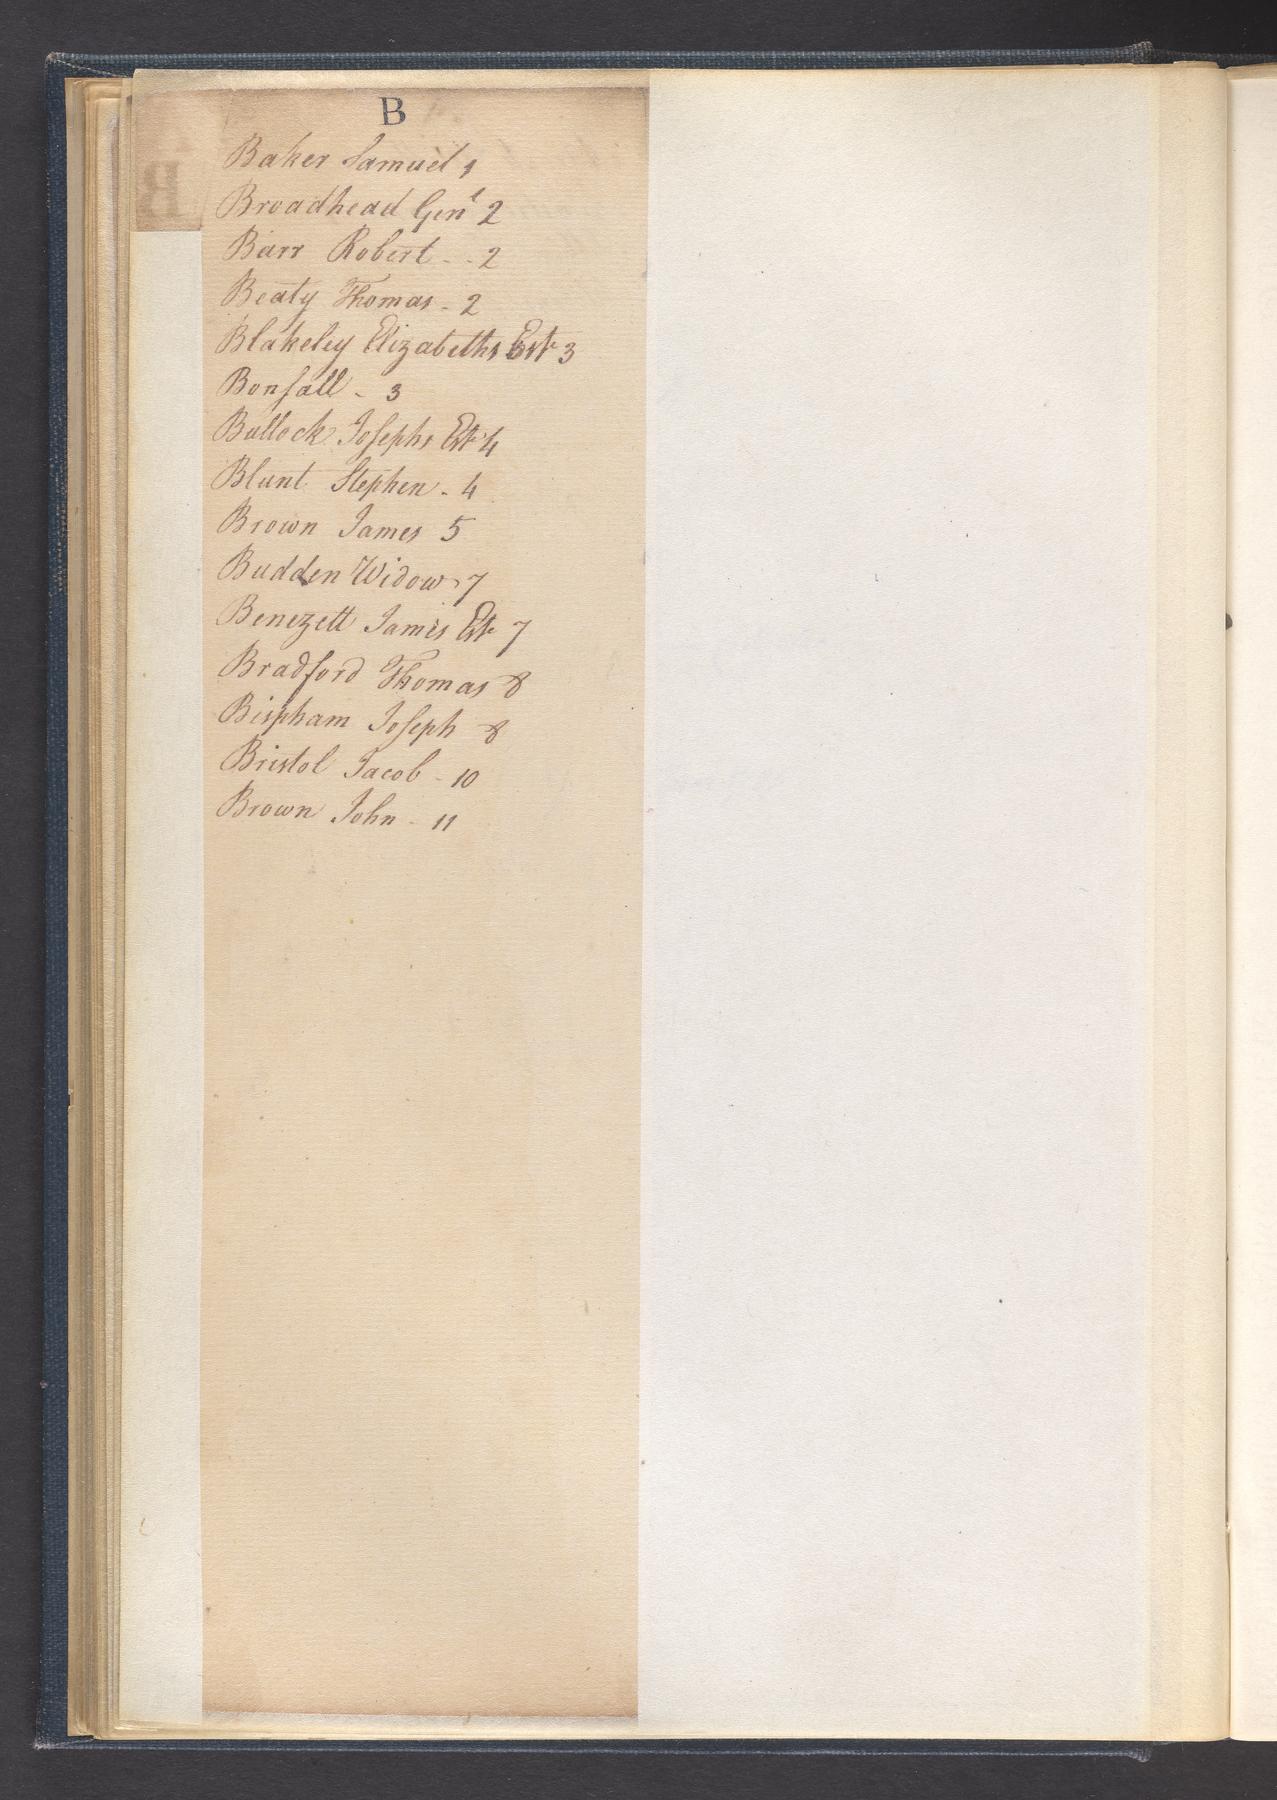 B
Baker Samuel 1
Broadhead Genl 2
Barr Robert - - 2
Beaty Thomas - 2
Blakeley Elizabeths Est 3
Bonsall - 3
Bullock Josephs Est 4
Blunt Stephen - 4
Brown James 5
Budden Widow - 7
Benezett James Est 7
Bradford Thomas 8
Bispham Joseph 8
Bristol Jacob - 10
Brown John - 11